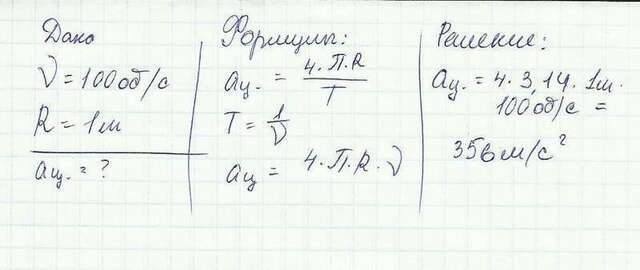 Дано
ν = 100об/с
R = 1м
aц. = ?
Формулы:
aц. = 4·П·R / T
T = 1/ν
aц = 4·П·R·ν
Решение:
aц. = 4·3,14·1м·
100об/с =
356м/с²